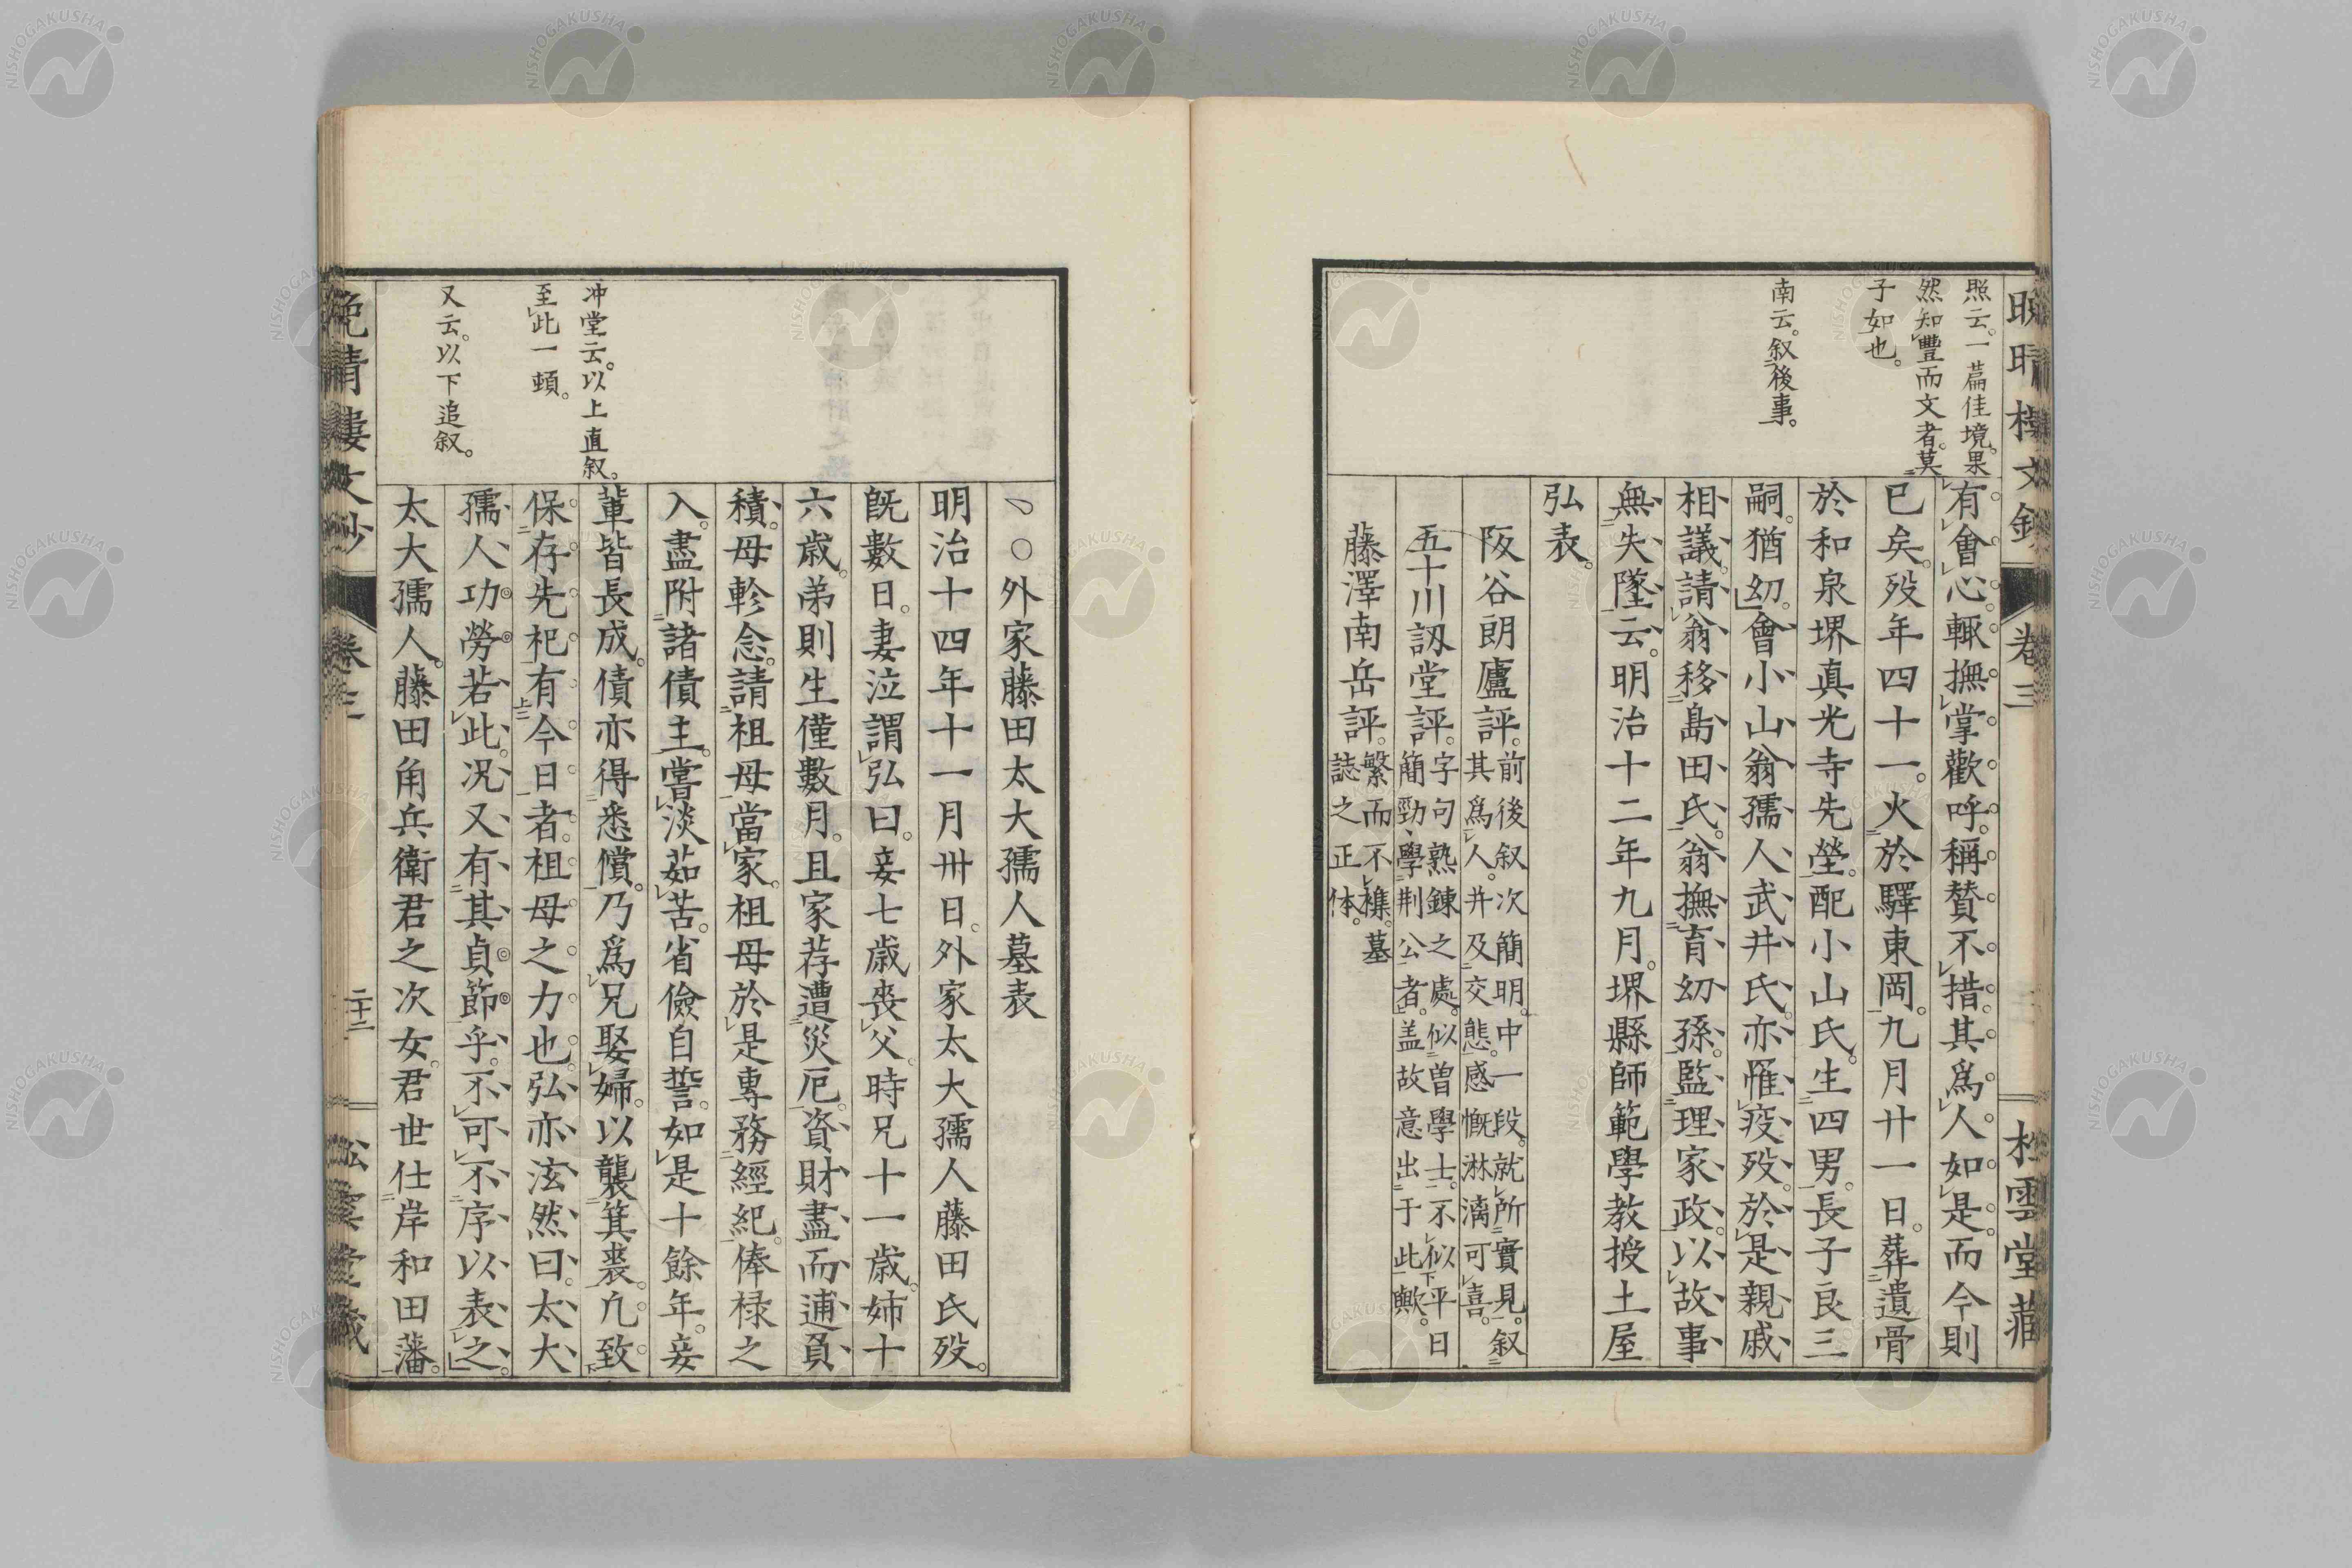 晚晴樓文鈔
卷三
松雲堂藏
照云。一篇佳境。果
然知豐而文者。莫
子如也。
南云。叙後事。
有會心。輒撫掌歡呼。稱賛不措。其爲人如是。而今則
已矣。歿年四十一。火於驛東岡。九月廿一日。葬遺骨
於和泉堺真光寺先塋。配小山氏。生四男。長子良三
嗣。猶幼。會小山翁孺人武井氏。亦罹疫歿。於是親戚
相議。請翁移島田氏。翁撫育幼孫。監理家政。以故事
無失墜云。明治十二年九月。堺縣師範學教授土屋
弘表。
阪谷朗廬評。前後叙次簡明。中一段。就所實見。叙
其爲人。并及交態。感慨淋漓可喜。
五十川訒堂評。字句熟錬之處。似曾學士。不似平日
簡勁、學荆公者。盖故意出于此歟。
藤澤南岳評。繁而不襍。墓
誌之正体。
〇外家藤田太大孺人墓表
明治十四年十一月卅日。外家太大孺人藤田氏歿。
既數日。妻泣謂弘曰。妾七歳喪父。時兄十一歳。姉十
六歳。弟則生僅數月。且家荐遭災厄。資財盡而逋負
積。母軫念。請祖母當家。祖母於是專務經紀。俸禄之
入。盡附諸債主。嘗淡茹苦。省儉自誓。如是十餘年。妾
輩皆長成。債亦得悉償。乃爲兄娶婦。以襲箕裘。凢致
保存先祀。有今日者。祖母之力也。弘亦泫然曰。太大
孺人功勞若此。况又有其貞節乎。不可不序以表之。
太大孺人。藤田角兵衛君之次女。君世仕岸和田藩。
冲堂云。以上直叙。
至此一頓。
又云。以下追叙。
晚晴樓文鈔
卷三
二十二
松雲堂藏